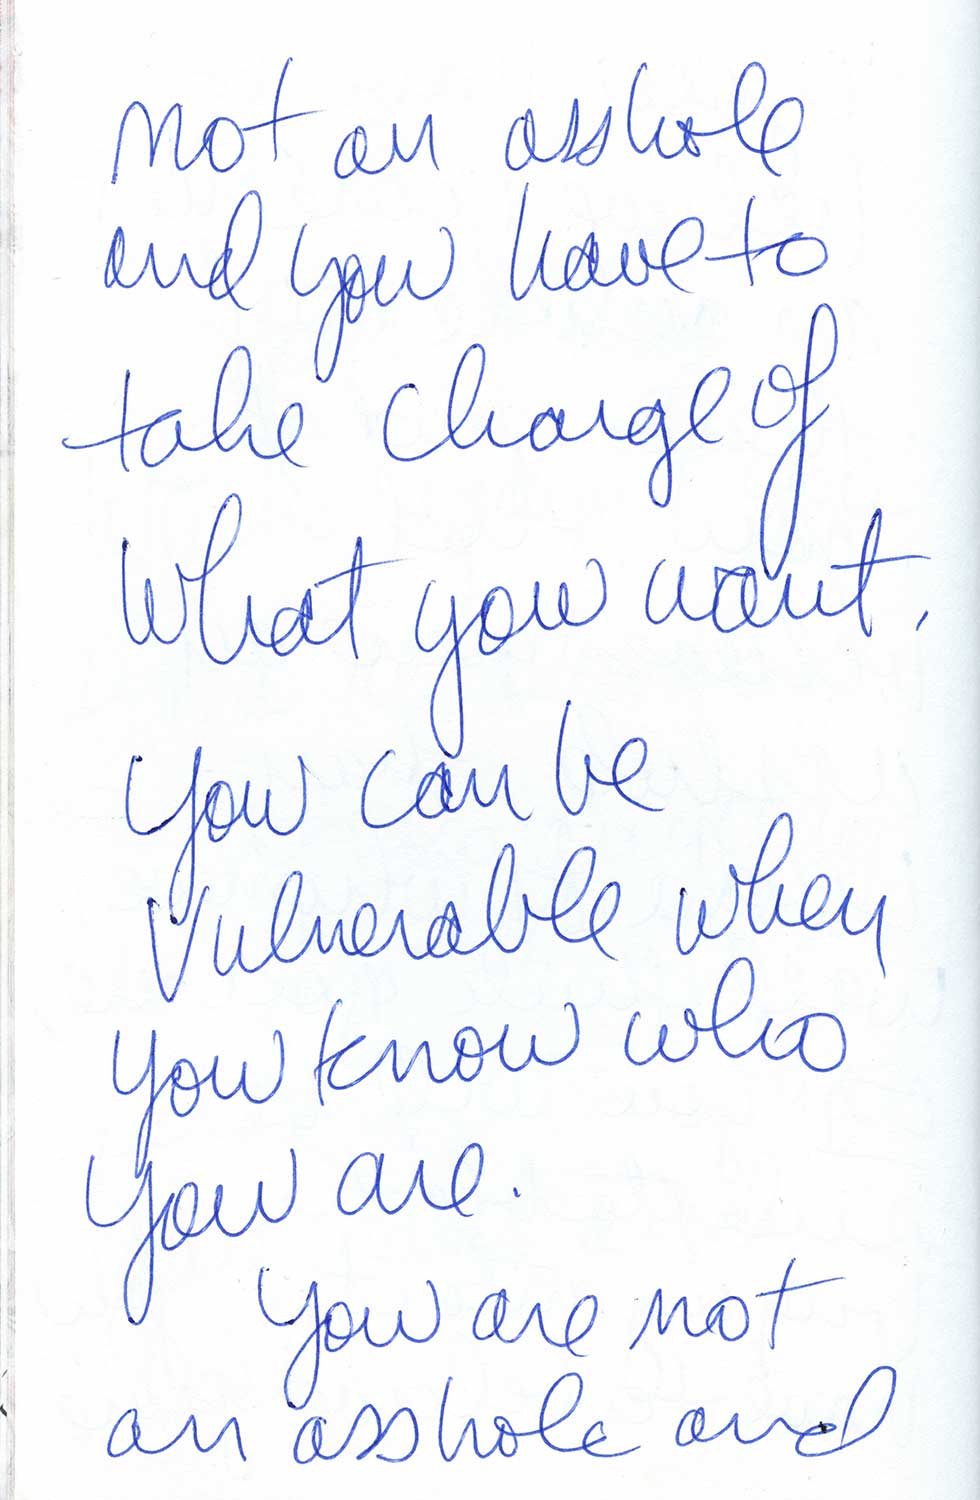 not an asshole
and you have to
take charge of
what you want.
You can be
vulnerable when
you know who
you are.
You are not
an asshole and